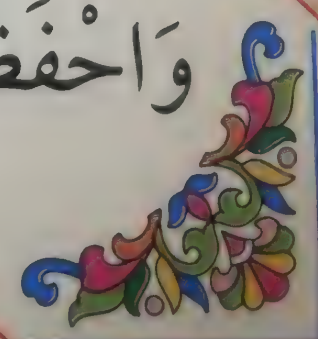 وَاحْفَظ